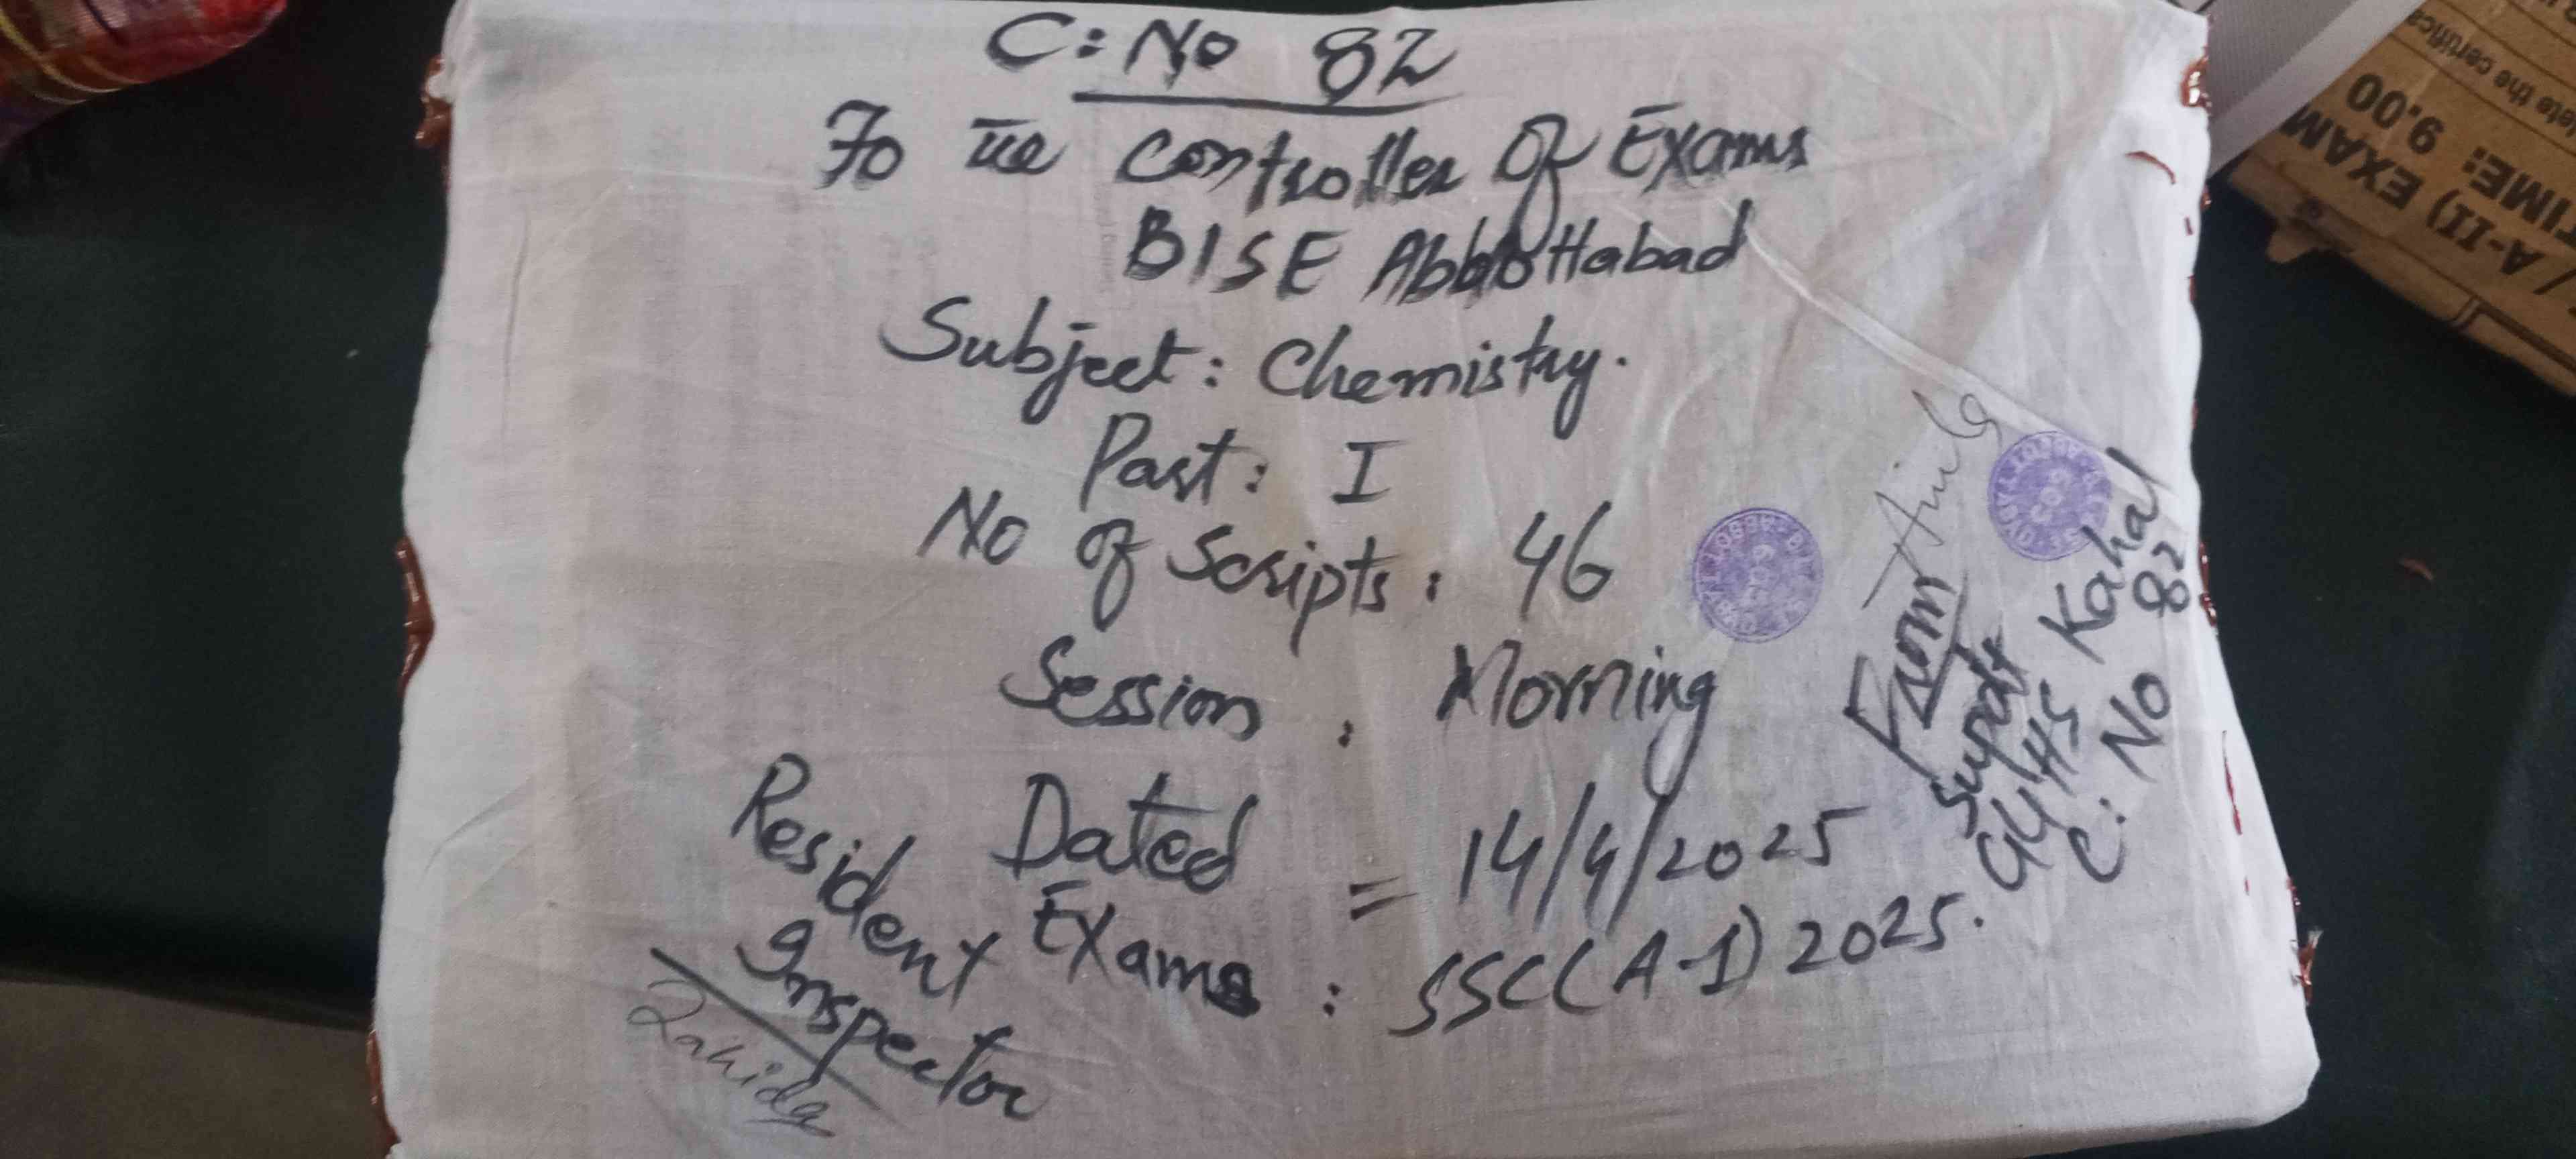 C: No 82
To the Controller Of Exams
BISE Abbottabad
Subject: Chemistry.
Part: I
No of Scripts: 46
Session : Morning
Dated = 14/4/2025
Exams : SSC (A-I) 2025.
Resident
Inspector
Zahida
From
Supdt
GGHS Kahal
C: No 82
A-II) EXAM
TIME: 9.00
the certifica